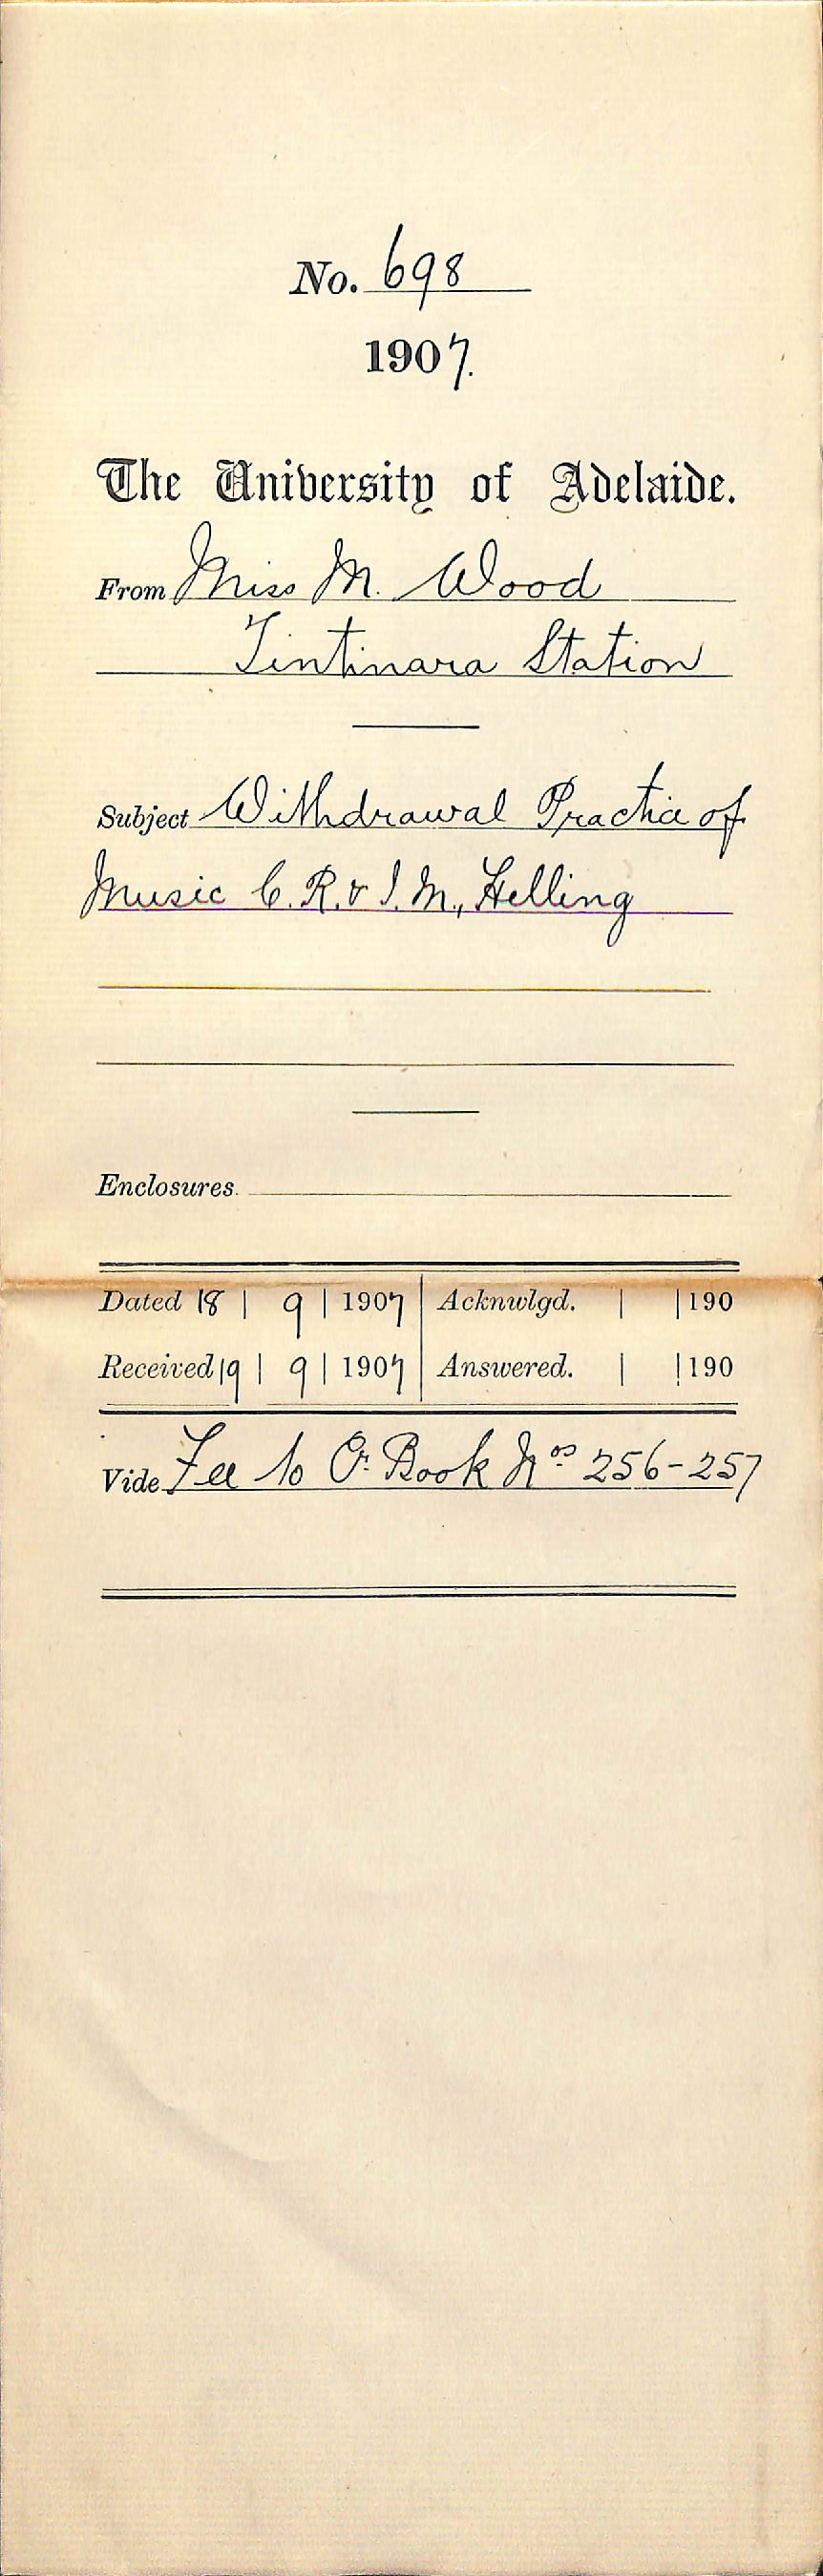 No. 698
1907.
The University of Adelaide.
From Miss M. Wood
Tintinara Station
Subject Withdrawal Practice of
Music C. R. & I. M., Helling
Enclosures.
Dated 18 | 9 | 1907 Acknwlgd. | | 190
Received 19 | 9 | 1907 Answered. | | 190
Vide Fee to Cr. Book Nos 256-257